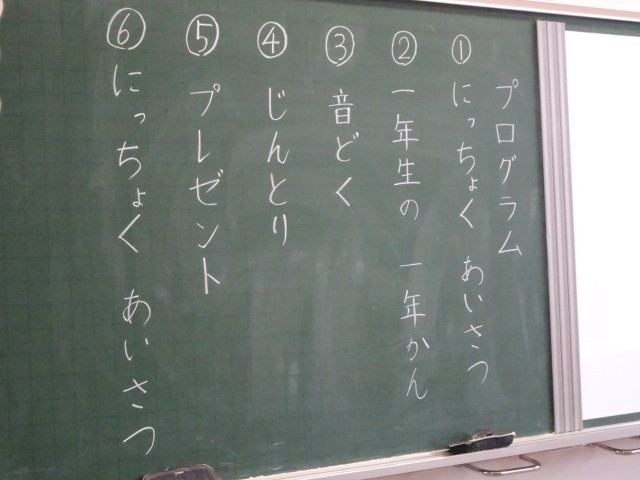 プログラム
①にっちょく あいさつ
②一年生の 一年かん
③音どく
④じんとり
⑤プレゼント
⑥にっちょく あいさつ